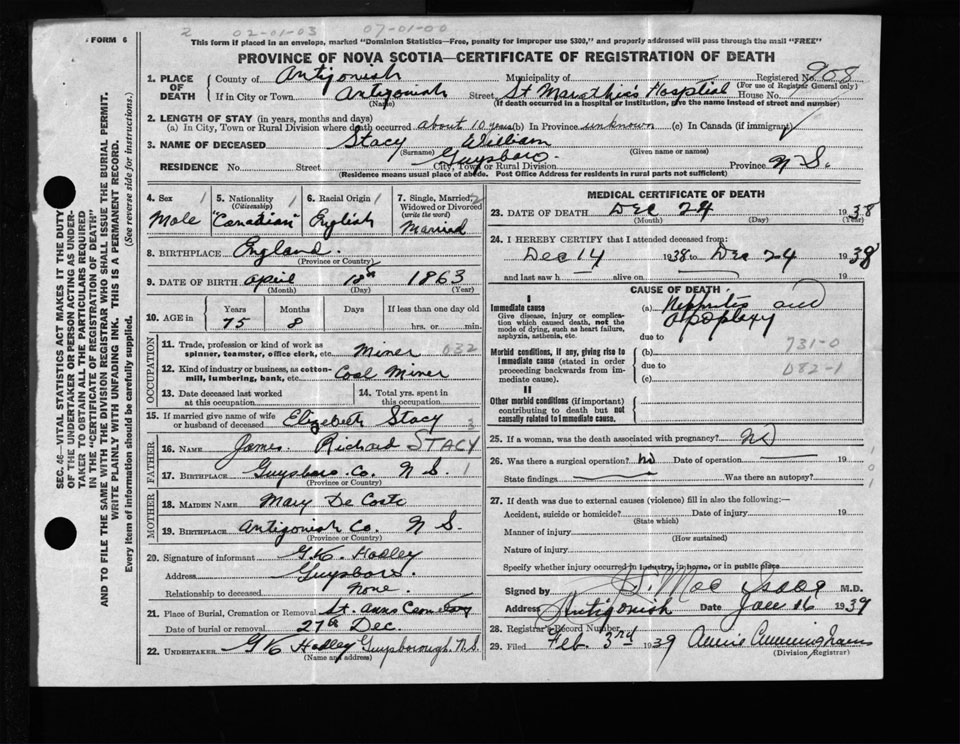 FORM 6
2 02-01-03 07-01-00
This form if placed in an envelope, marked "Dominion Statistics—Free, penalty for improper use $300," and properly addressed will pass through the mail "FREE"
PROVINCE OF NOVA SCOTIA—CERTIFICATE OF REGISTRATION OF DEATH
1. PLACE OF DEATH
County of Antigonish Municipality of Registered No. 908
(For use of Registrar General only)
If in City or Town Antigonish Street St Marathia's Hosptial House No.
(Name) (If death occurred in a hospital or institution, give the name instead of street and number)
2. LENGTH OF STAY (in years, months and days)
(a) In City, Town or Rural Division where death occurred about 10 years (b) In Province unknown (c) In Canada (if immigrant)
3. NAME OF DECEASED Stacy William
(Surname) (Given name or names)
RESIDENCE No. Street Guysboro. City, Town or Rural Division Province N S.
(Residence means usual place of abode. Post Office Address for residents in rural parts not sufficient)
4. Sex 1
Male
5. Nationality 1
(Citizenship)
"Canadian"
6. Racial Origin 1
English
7. Single, Married, 2
Widowed or Divorced
(write the word)
Married
8. BIRTHPLACE England.
(Province or Country) 2
9. DATE OF BIRTH April 18th 1863
(Month) (Day) (Year)
10. AGE in Years Months Days If less than one day old
75 8 hrs. or min.
OCCUPATION
11. Trade, profession or kind of work as
spinner, teamster, office clerk, etc. Miner 032
12. Kind of industry or business, as cotton-
mill, lumbering, bank, etc. Coal Miner
13. Date deceased last worked
at this occupation
14. Total yrs. spent in
this occupation
15. If married give name of wife
or husband of deceased Elizabeth Stacy 3
FATHER
16. NAME James. Richard STACY
17. BIRTHPLACE Guysboro. Co. N S. 1
(Province or Country)
MOTHER
18. MAIDEN NAME Mary De Coste
19. BIRTHPLACE Antigonish Co. N S.
(Province or Country)
20. Signature of informant G.K. Hadley
Address Guysboro.
Relationship to deceased None.
21. Place of Burial, Cremation or Removal St. Anns Cemetary
Date of burial or removal 27th Dec.
22. UNDERTAKER GK Hadley Guysborough. N.S.
(Name and address)
MEDICAL CERTIFICATE OF DEATH
23. DATE OF DEATH Dec 24 1938
(Month) (Day) (Year)
24. I HEREBY CERTIFY that I attended deceased from:
Dec 14 1938 to Dec 24 1938
and last saw h alive on 19
CAUSE OF DEATH
I
Immediate cause
Give disease, injury or complica-
tion which caused death, not the
mode of dying, such as heart failure,
asphyxia, asthenia, etc.
(a) Nephritis and
apoplexy
due to
731-0
Morbid conditions, if any, giving rise to
immediate cause (stated in order
proceeding backwards from im-
mediate cause).
(b)
due to
082-1
(c)
II
Other morbid conditions (if important)
contributing to death but not
causally related to immediate cause.
25. If a woman, was the death associated with pregnancy? No
26. Was there a surgical operation? No Date of operation 19
State findings Was there an autopsy?
1 0 1
27. If death was due to external causes (violence) fill in also the following:—
Accident, suicide or homicide? Date of injury 19
(State which)
Manner of injury
(How sustained)
Nature of injury
Specify whether injury occurred in industry, in home, or in public place
Signed by Mac Isaac M.D.
Address Antigonish Date Jan 16 1939
28. Registrar's Record Number
29. Filed Feb. 3rd 1939 Annie Cunningham
(Division Registrar)
SEC. 46—VITAL STATISTICS ACT MAKES IT THE DUTY
OF THE UNDERTAKER OR PERSON ACTING AS UNDER-
TAKER TO OBTAIN ALL THE PARTICULARS REQUIRED
IN THE "CERTIFICATE OF REGISTRATION OF DEATH"
AND TO FILE THE SAME WITH THE DIVISION REGISTRAR WHO SHALL ISSUE THE BURIAL PERMIT.
WRITE PLAINLY WITH UNFADING INK. THIS IS A PERMANENT RECORD.
Every item of information should be carefully supplied. (See reverse side for instructions.)